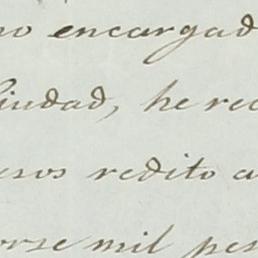 no encargad
Ciudad, he rec
esos redito a
orse mil pes